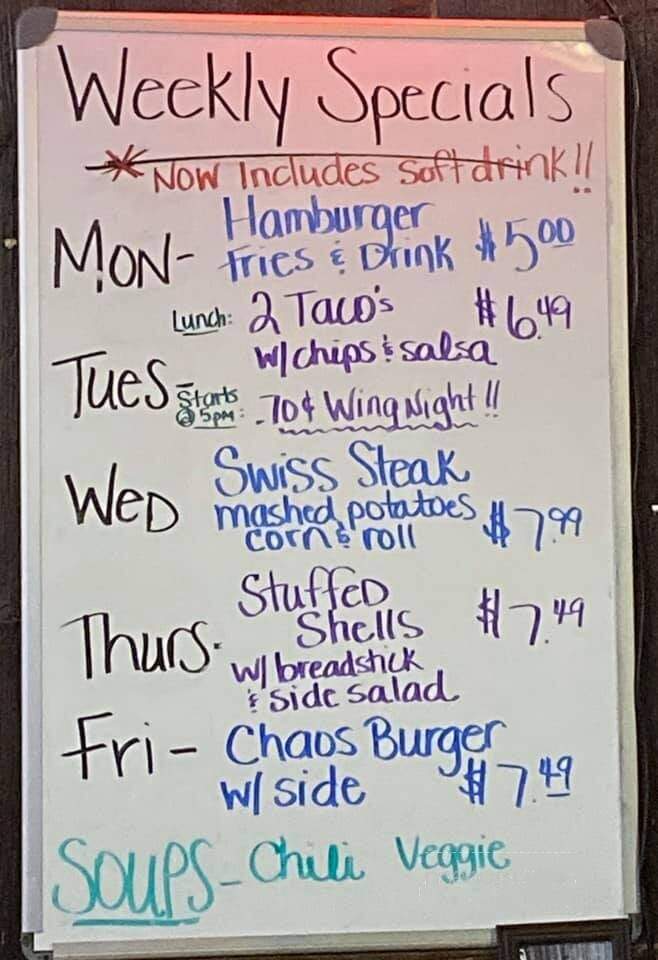 Weekly Specials
* NOW Includes Soft drink!!
MON- Hamburger
fries & Drink $5.00
Lunch: 2 Taco's $6.49
w/chips & salsa
Tues- Starts @ 5pm: .70¢ Wing Night!!
Wed Swiss Steak
mashed potatoes $7.99
corn & roll
Thurs. Stuffed
Shells $7.49
w/ breadstick
& side salad
Fri- Chaos Burger
w/ side $7.49
SOUPS- Chili Veggie